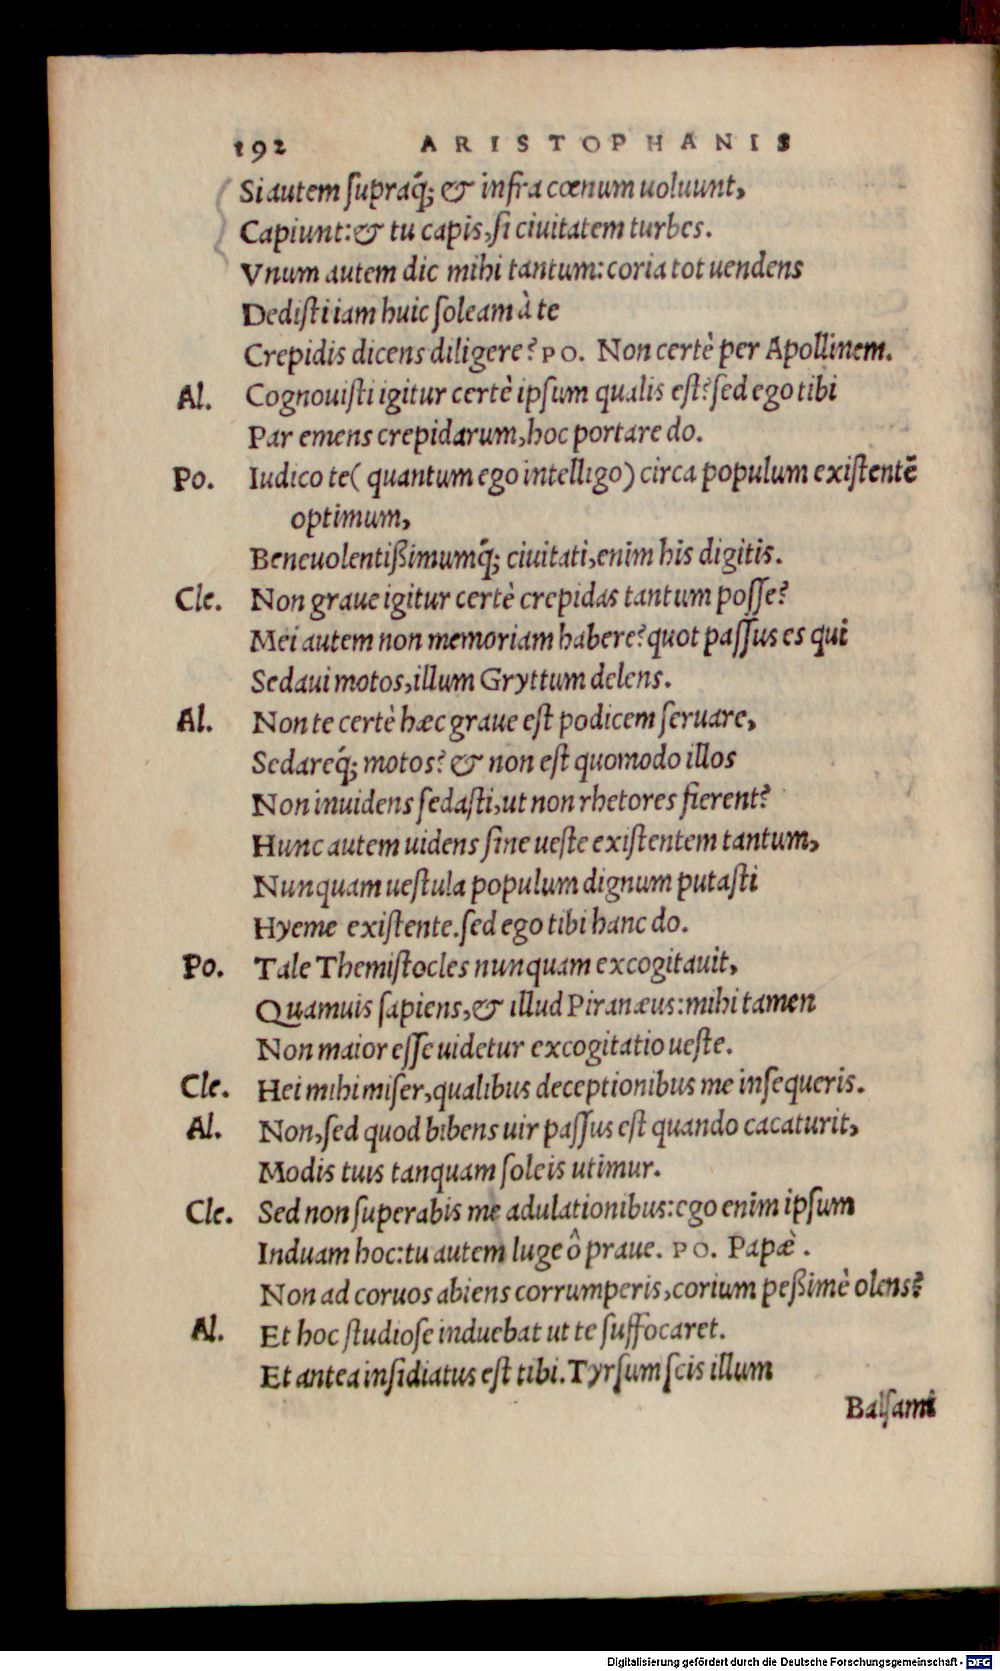 192 ARISTOPHANIS
Si autem ſupraq́; & infra cœnum uoluunt,
Capiunt: & tu capis, ſi ciuitatem turbes.
Vnum autem dic mihi tantum: coria tot uendens
Dediſti iam huic ſoleam à te
Crepidis dicens diligere? PO. Non certè per Apollinem.
Al. Cognouiſti igitur certè ipſum qualis eſt? ſed ego tibi
Par emens crepidarum, hoc portare do.
Po. Iudico te ( quantum ego intelligo) circa populum exiſtentē
optimum,
Beneuolentißimumq́; ciuitati, enim his digitis.
Cle. Non graue igitur certè crepidas tantum poſſe?
Mei autem non memoriam habere? quot paſſus es qui
Sedaui motos, illum Gryttum delens.
Al. Non te certè hæc graue eſt podicem ſeruare,
Sedareq́; motos? & non eſt quomodo illos
Non inuidens ſedaſti, ut non rhetores fierent?
Hunc autem uidens ſine ueſte exiſtentem tantum,
Nunquam ueſtula populum dignum putaſti
Hyeme exiſtente. ſed ego tibi hanc do.
Po. Tale Themiſtocles nunquam excogitauit,
Quamuis ſapiens, & illud Piranæus: mihi tamen
Non maior eſſe uidetur excogitatio ueſte.
Cle. Hei mihi miſer, qualibus deceptionibus me inſequeris.
Al. Non, ſed quod bibens uir paſſus eſt quando cacaturit,
Modis tuis tanquam ſoleis utimur.
Cle. Sed non ſuperabis me adulationibus: ego enim ipſum
Induam hoc: tu autem luge ô praue. PO. Papæ̀.
Non ad coruos abiens corrumperis, corium peßimè olens?
Al. Et hoc ſtudioſe induebat ut te ſuffocaret.
Et antea inſidiatus eſt tibi. Tyrſum ſcis illum
Balſami
Digitalisierung gefördert durch die Deutsche Forschungsgemeinschaft - DFG